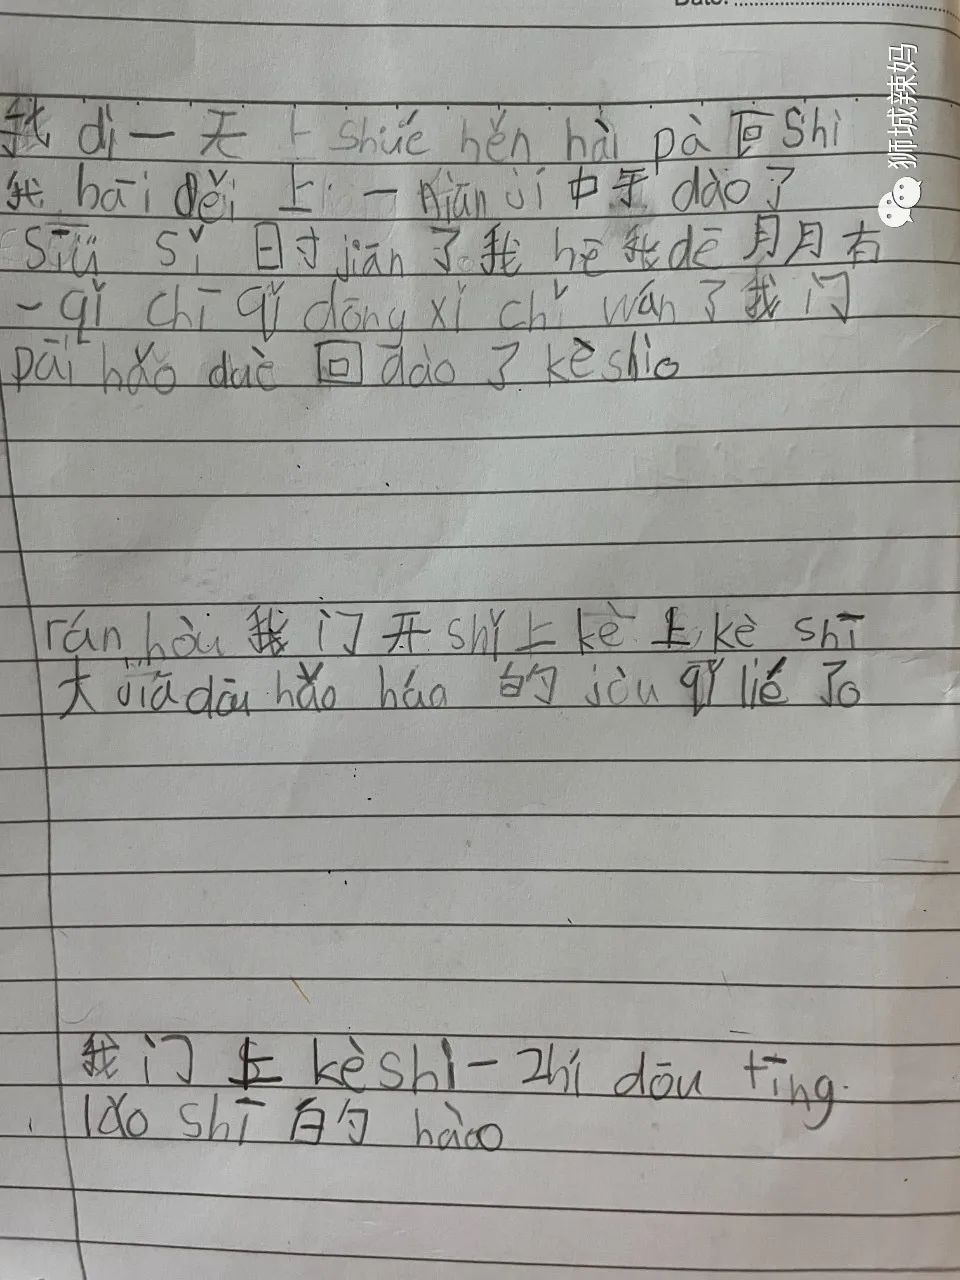 Date:
我 dì 一 天 上 shué hěn hài pà 回 Shì
我 hāi děi 上 一 nián jí 中午 dào 了
sīü sǐ 时 jiān 了。我 hē 我 dē 月月 有
一 qǐ chī qǐ dōng xi chǐ wán 了 我 门
pāi hǎo duè 回 dào 了 kè shì。
rán hòu 我 门 开 shǐ 上 kè 上 kè shī
大 jiā dōu hǎo háo 的 jòu qǐ lié 了。
我 门 上 kè shì 一 zhí dōu tīng
lǎo shī 的 hào
狮城辣妈